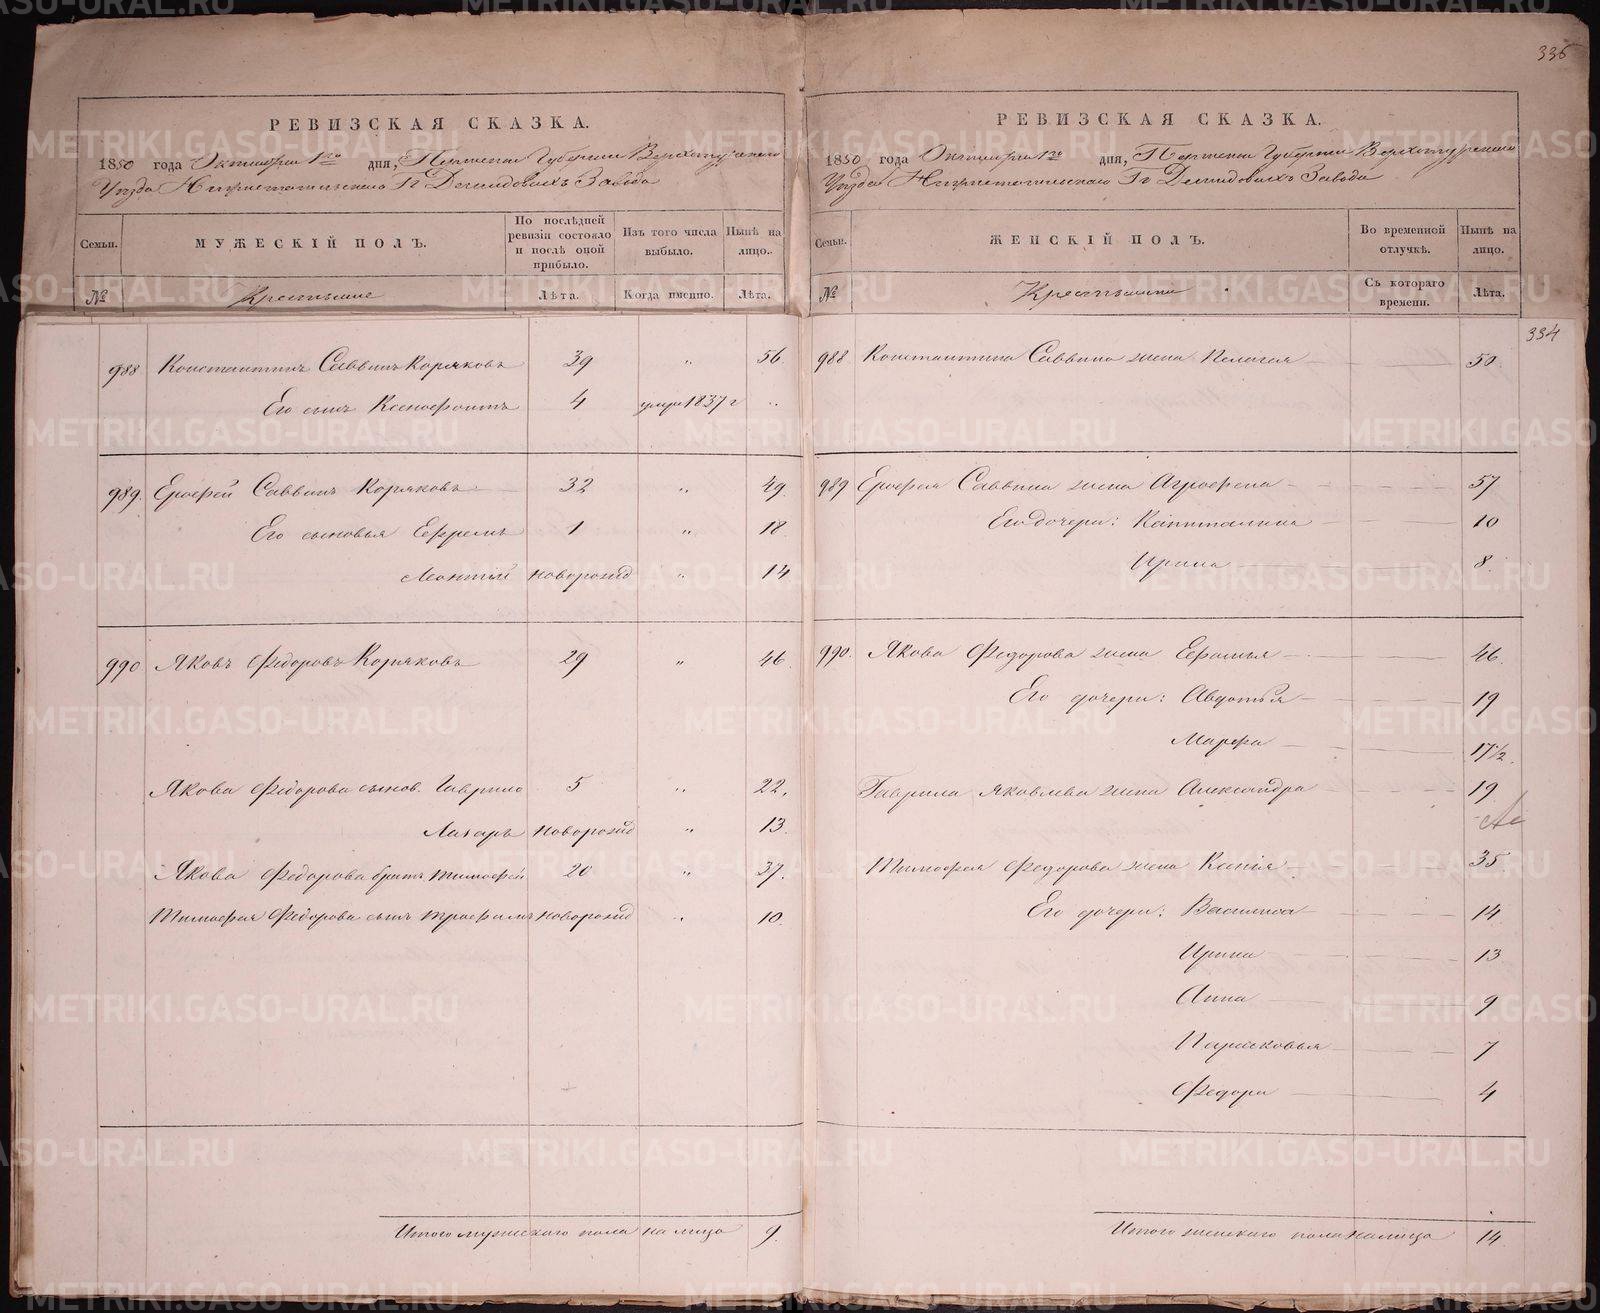 335
РЕВИЗСКАЯ СКАЗКА.
1850 года Октября 1го дня, Пермской Губернии Верхотурскаго
Уѣзда Г. Демидовыхъ Завода
Семьи.
МУЖЕСКІЙ ПОЛЪ.
По послѣдней ревизіи состояло и послѣ оной прибыло.
Изъ того числа выбыло.
Нынѣ на лицо.
№
Крестьяне
Лѣта.
Когда именно.
Лѣта.
988 Константинъ Саввинъ Коряковъ 39 „ 56
Его сынъ Ксенофонтъ 4 умре 1837 г „
989. Ерофей Саввинъ Коряковъ 32 „ 49.
Его сыновья Ефремъ 1 „ 18
Леонтій новорожд „ 14
990 Яковъ Федоровъ Коряковъ 29 „ 46.
Якова Федорова сынов. Гаврило 5 „ 22.
Лазарь новорожд „ 13.
Якова Федорова братъ Тимофей 20 „ 37.
Тимофея Федорова сынъ Трофимъ новорожд „ 10.
Итого мужескаго пола на лицо 9.
РЕВИЗСКАЯ СКАЗКА.
1850 года Октября 1го дня, Пермской Губерніи Верхотурскаго
Уѣзда Г. Демидовыхъ Завода
Семьи.
ЖЕНСКІЙ ПОЛЪ.
Во временной отлучкѣ.
Нынѣ на лицо.
№
Крестьянки
Съ котораго времени.
Лѣта.
334
988 Константина Саввина жена Пелагея 50
989 Ерофея Саввина жена Агрофена 57
Его дочери: Капиталина 10
Ирина 8.
990. Якова Федорова жена Ефимья 46.
Его дочери: Авдотья 19
Марфа 17 1/2.
Гаврила Яковлева жена Александра 19
Тимофея Федорова жена Ксенія 35
Его дочери: Василиса 14
Ирина 13
Анна 9
Парасковья 7
Федора 4
Итого женскаго пола налицо 14
METRIKI.GASO-URAL.RU